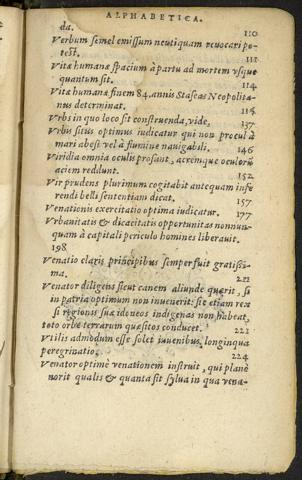 ALPHABETICA.
da. 110
Verbum semel emissum neutiquam reuocari po-
test. 111
Vitæ humanæ spacium à partu ad mortem vsque
quantum sit. 114
Vitæ humanæ finem 84.annis Staseas Neapolita-
nus determinat. 115
Vrbs in quo loco sit construenda, vide, 137
Vrbs situs optimus iudicatur qui non procul à
mari abest vel à flumine nauigabili. 146
Viridia omnia oculis prosunt, acremque oculorũ
aciem reddunt. 152
Vir prudens plurimum cogitabit antequam infe
rendi belli sententiam dicat. 157
Venationis exercitatio optima iudicatur. 177
Vrbanitatis & dicacitatis opportunitas nonnun-
quam à capitali periculo homines liberauit.
198
Venatio claris principibus semper fuit gratissi-
ma. 212
Venator diligens sicut canem aliunde quærit, si
in patria optimum non inuenerit: sic etiam rex
si regionis suæ idoneos indigenas non habeat,
toto orbe terrarum quæsitos conducet. 221
Vtilis admodum esse solet iuuenibus longinqua
peregrinatio. 224
Venator optimè venationem instruit, qui planè
norit qualis & quanta sit sylua in qua vena-